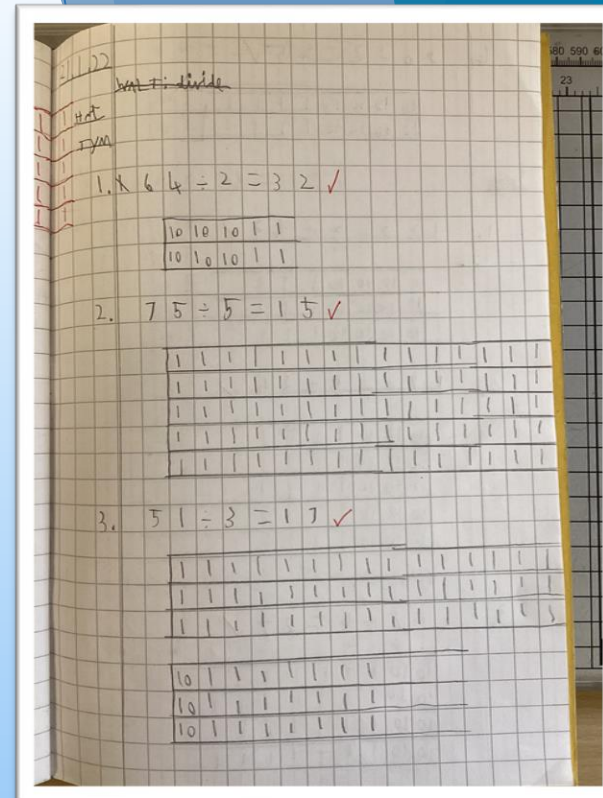 WALT: divide
1. x 64 ÷ 2 = 32 ✓
10 10 10 1 1
10 10 10 1 1
2. 75 ÷ 5 = 15 ✓
1 1 1 1 1 1 1 1 1 1 1 1 1 1 1
1 1 1 1 1 1 1 1 1 1 1 1 1 1 1
1 1 1 1 1 1 1 1 1 1 1 1 1 1 1
1 1 1 1 1 1 1 1 1 1 1 1 1 1 1
1 1 1 1 1 1 1 1 1 1 1 1 1 1 1
3. 51 ÷ 3 = 17 ✓
1 1 1 1 1 1 1 1 1 1 1 1 1 1 1
1 1 1 1 1 1 1 1 1 1 1 1 1 1 1
1 1 1 1 1 1 1 1 1 1 1 1 1 1 1
10 1 1 1 1 1 1 1
10 1 1 1 1 1 1 1
10 1 1 1 1 1 1 1
580 590
23